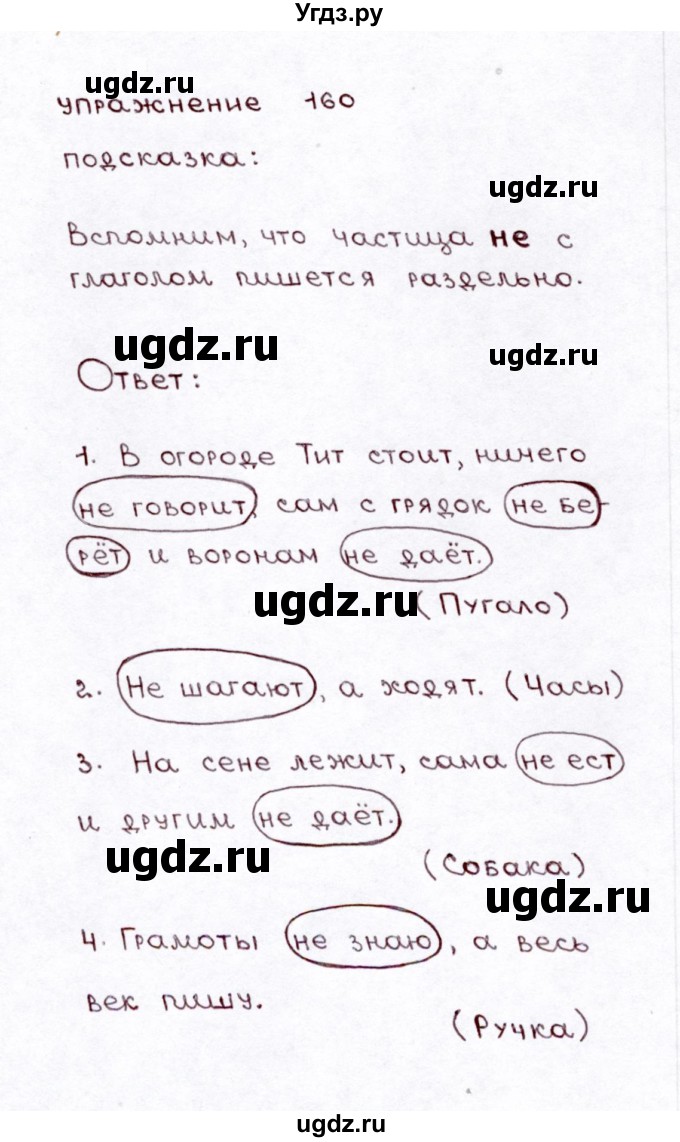 Угдз.ру
ugdz.ru
упражнение 160
подсказка:
ugdz.ru
Вспомним, что частица не с
глаголом пишется раздельно.
ugdz.ru
ugdz.ru
Ответ:
1. В огороде Тит стоит, ничего
не говорит, сам с грядок не бе-
рёт и воронам не даёт.
ugdz.ru
(Пугало)
2. Не шагают, а ходят. (Часы)
3. На сене лежит, сама не ест
и другим не даёт.
ugdz.ru
(Собака)
ugdz.ru
4. Грамоты не знаю, а весь
век пишу.
(Ручка)
ugdz.ru